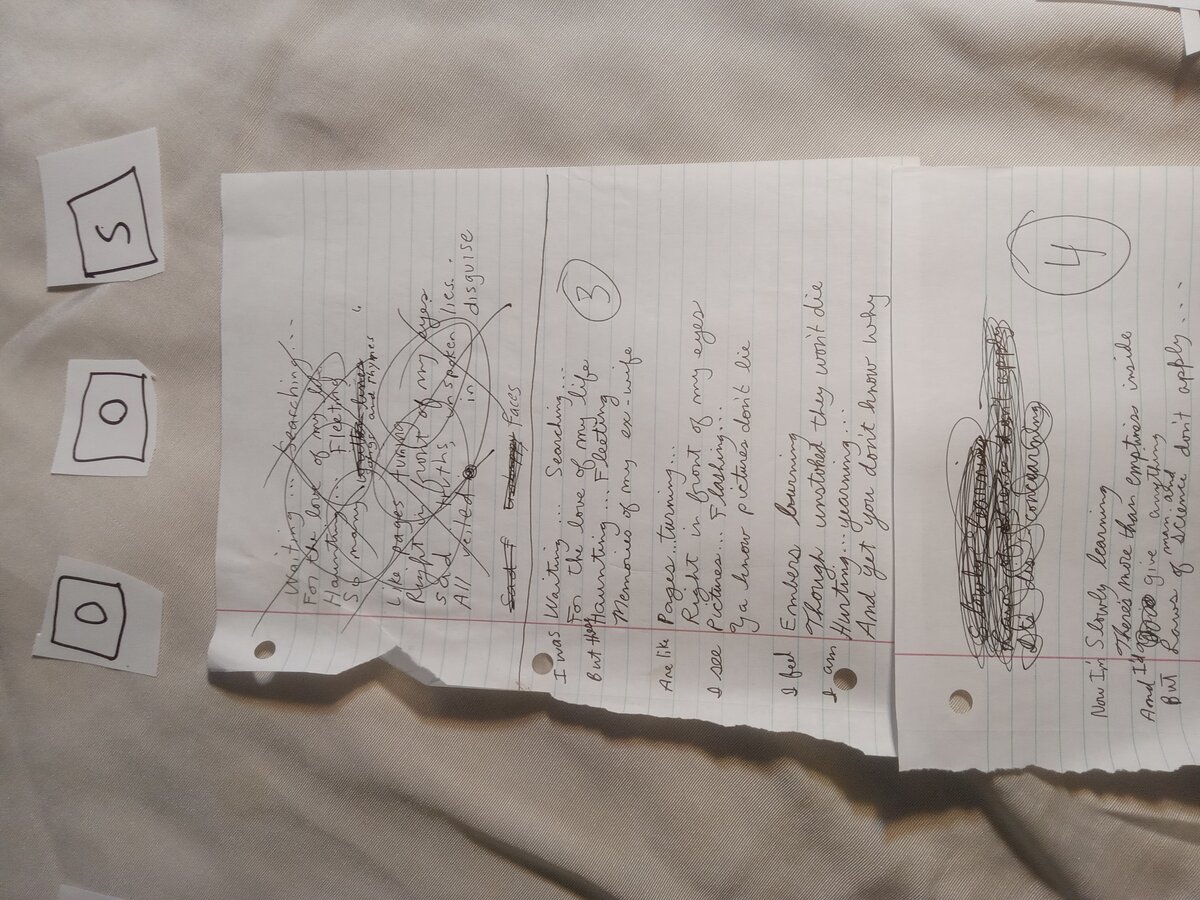 0 0 5
Waiting... Searching...
For the love of my life
Haunting... Fleeting
So many
songs and rhymes
Like pages turning
Right in front of my eyes
Sad truths, unspoken lies.
All veiled in disguise
Sad Faces
3
I was Waiting... Searching...
For the love of my life
But these Haunting... Fleeting
Memories of my ex-wife
Are like Pages... turning...
Right in front of my eyes
I see Pictures... Flashing...
Ya know pictures don't lie
I feel Embers burning
Though unstoked they won't die
I am Hurting... yearning...
And yet you don't know why
4
Now I'm Slowly learning
There's more than emptiness inside
And I'd give anything
But man and
Laws of science don't apply....